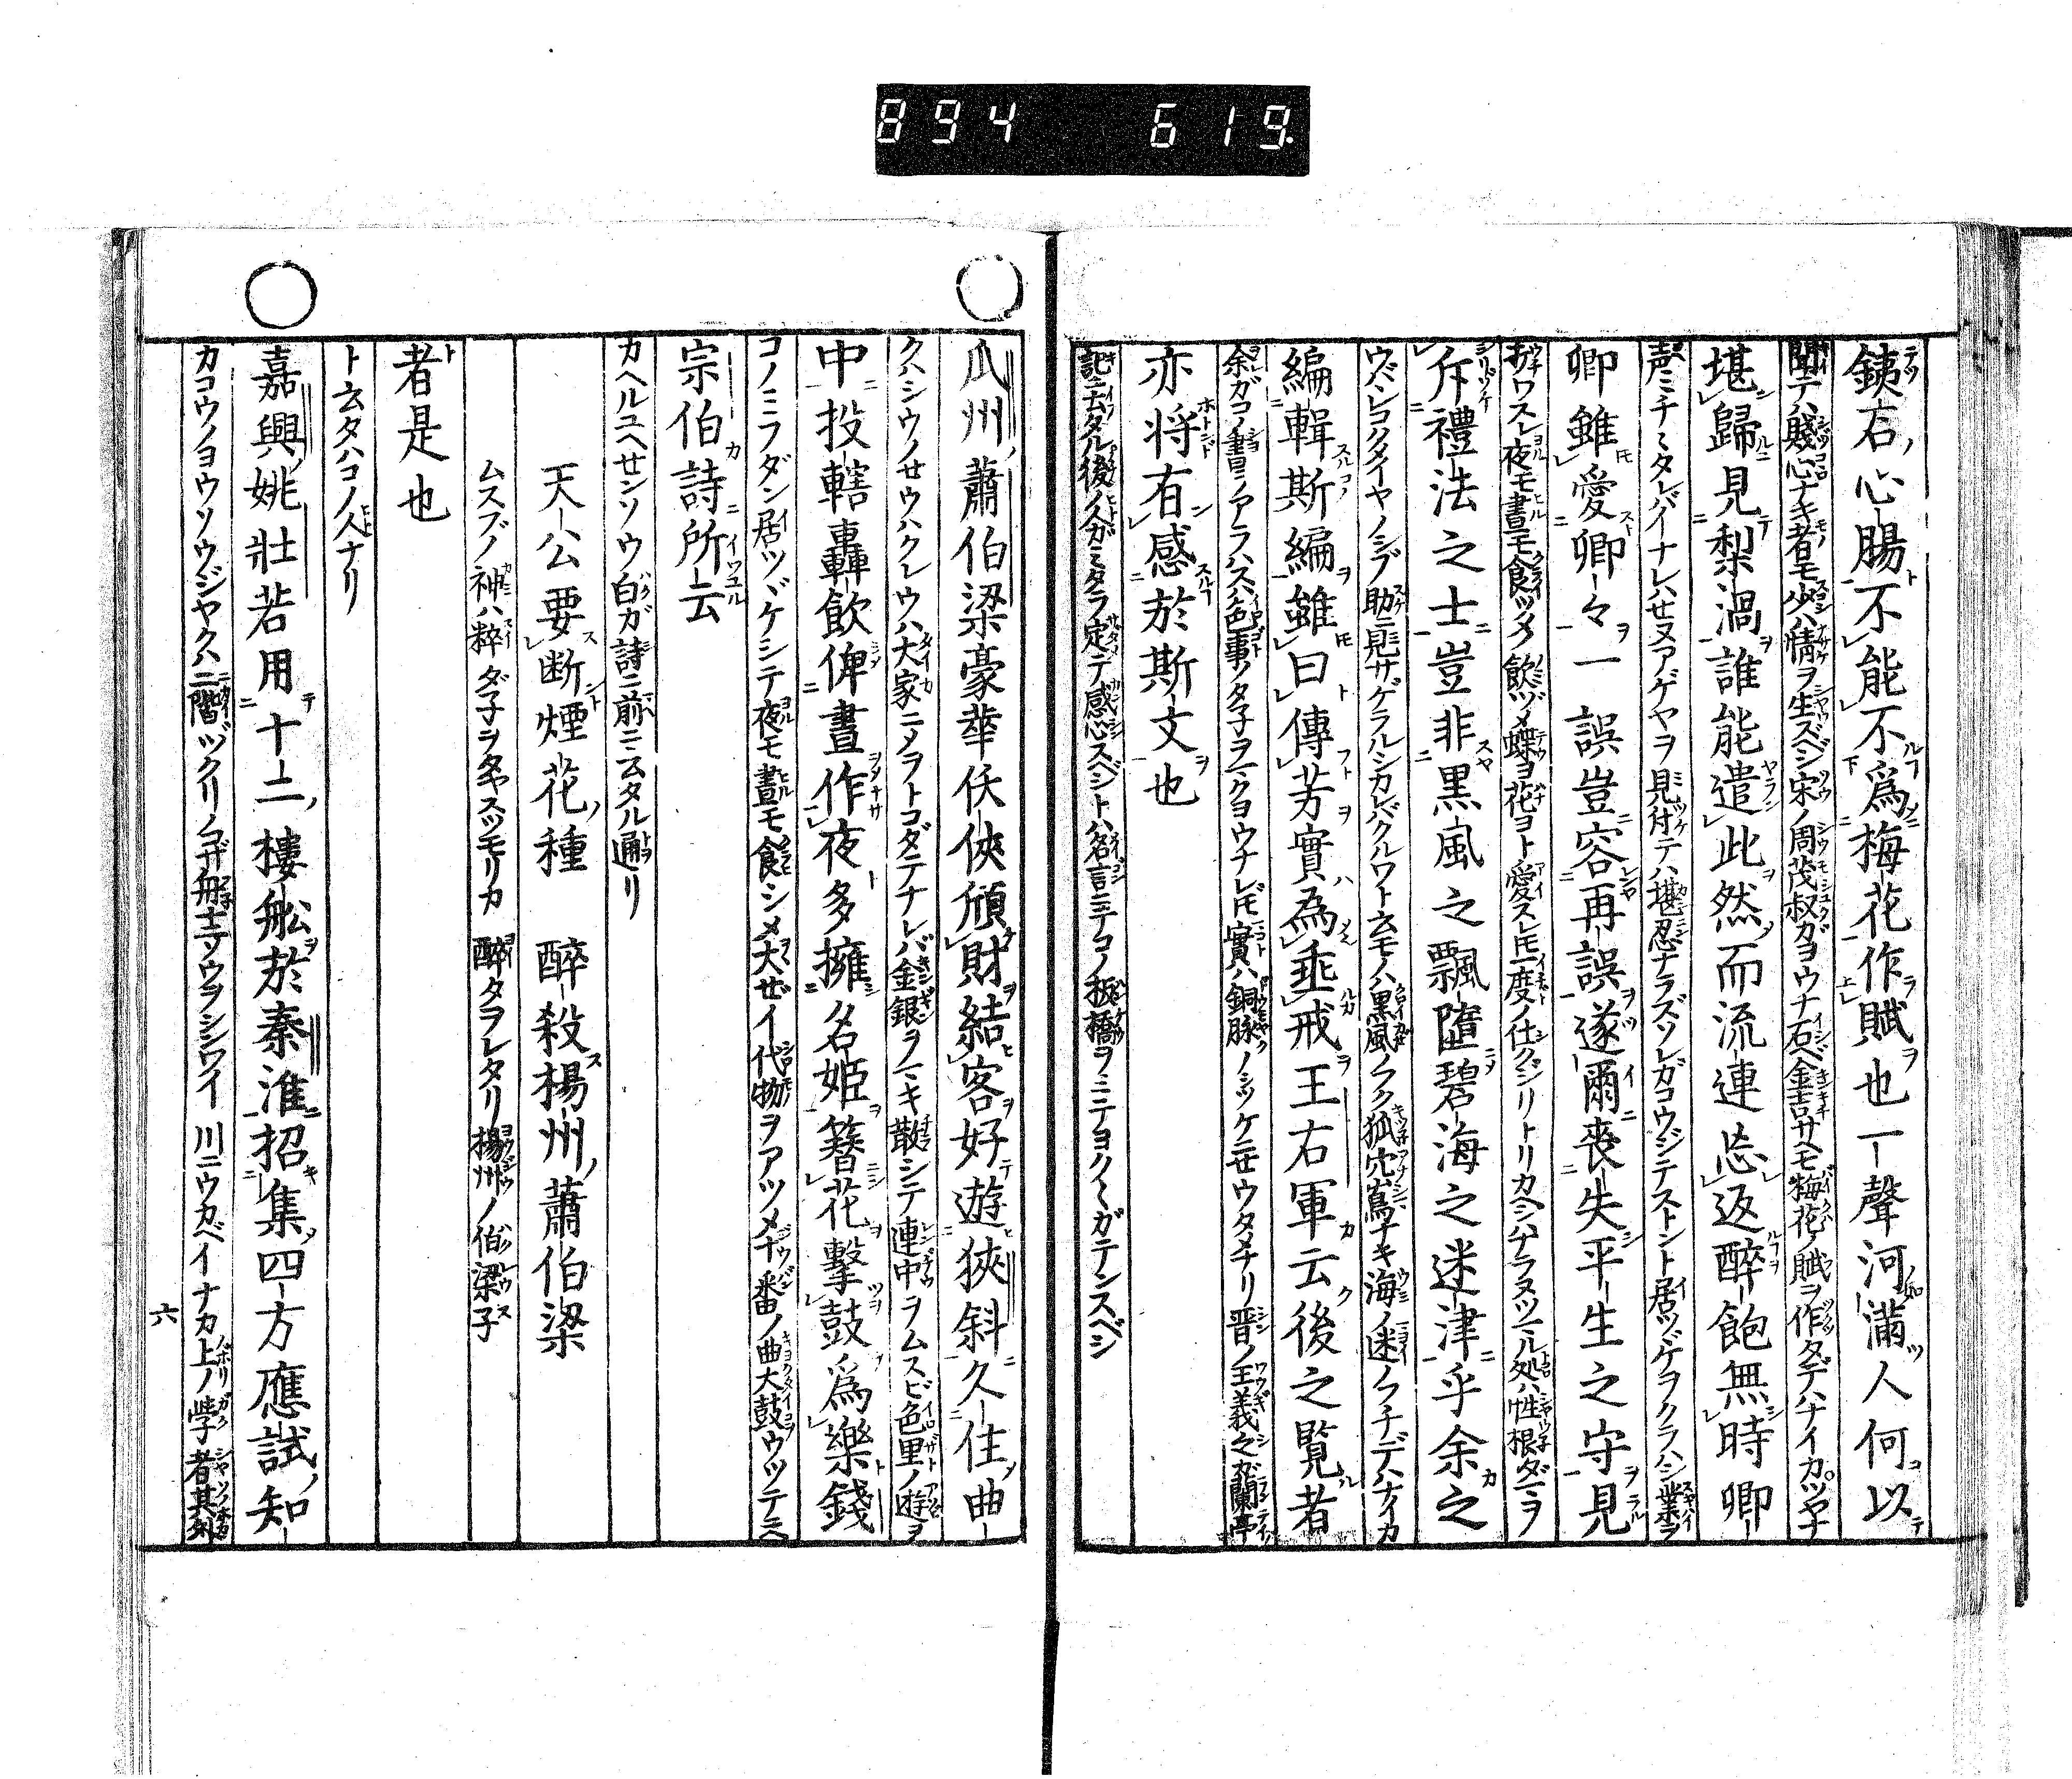 894 619
銕石心腸不能不爲梅花作賦也一聲河滿人何以
聞テハ賤心ナキ者モ少ハ情ヲ生ズベシ宋ノ周茂叔ガヨウナ石ベ金吉サヘモ梅花ノ賦ヲ作タデハナイカ
堪歸見梨渦誰能遣此然而流連忘返醉飽無時卿
声ミチミタレバイナレハセヌアゲヤヲ見付テハ堪忍ナラズソレガコウジテストント居ツゲヲクラハシ業ヲ
卿雖愛卿々一誤豈容再誤遂爾喪失平生之守見
打ワスレ夜モ晝モ食ツメ飲ヅメ蝶ヨ花ヨト愛スレ𪜈一度ノ仕クジリトリカヘシハナラヌツマル処ハ性根ダマヲ
斥禮法之士豈非黒風之飄墮碧海之迷津乎余之
ウバハレコクタイヤノシブ助ニ見サゲラルシカレバクルワト云モノハ黒風ノフク狐穴嶌ナキ海ノ迷ノフチデハナイカ
編輯斯編雖曰傳芳實為垂戒王右軍云後之覧者
余ガコノ書ヲアラハスハ色事ノタ子ヲマクヨウナレ𪜈實ハ銅脉ノシツケニセウタメナリ晋ノ王義之ガ蘭亭
亦将有感於斯文也
記ニ云タル後ノ人ガミタラ定テ感心スベシトハ名言ニテコノ板橋ヲミニテヨクヽガテンスベシ
瓜州蕭伯梁豪華任俠傾財結客好遊狹斜久住曲
クハシウノせウハクレウハ大家ニノヲトコダテナレバ金銀ヲマキ散シテ連中ヲムスビ色里ノ遊ヲ
中投轄轟飲俾晝作夜多擁名姫簪花擊鼓爲樂錢
コノミフダン居ツヾケシテ夜モ晝モ食シメ大ぜイ代物ヲアツメ十番ノ曲大鼓ウツテミヘ
宗伯詩所云
カヘルユヘせンソウ白ガ詩ニ前ニ云タル通リ
天公要断煙花種　醉殺楊州蕭伯梁
ムスブノ神ハ粹ダ子ヲタヤスツモリカ　醉タヲレタリ楊州ノ伯梁子
者是也
ト云タハコノ人ナリ
嘉興姚壮若用十二樓舩於秦淮招集四方應試知
カコウノヨウソウジヤクハ二階ヅクリノゴザ舟十二ソウヲシツライ川ニウカベイナカ上ノ学者其外
六